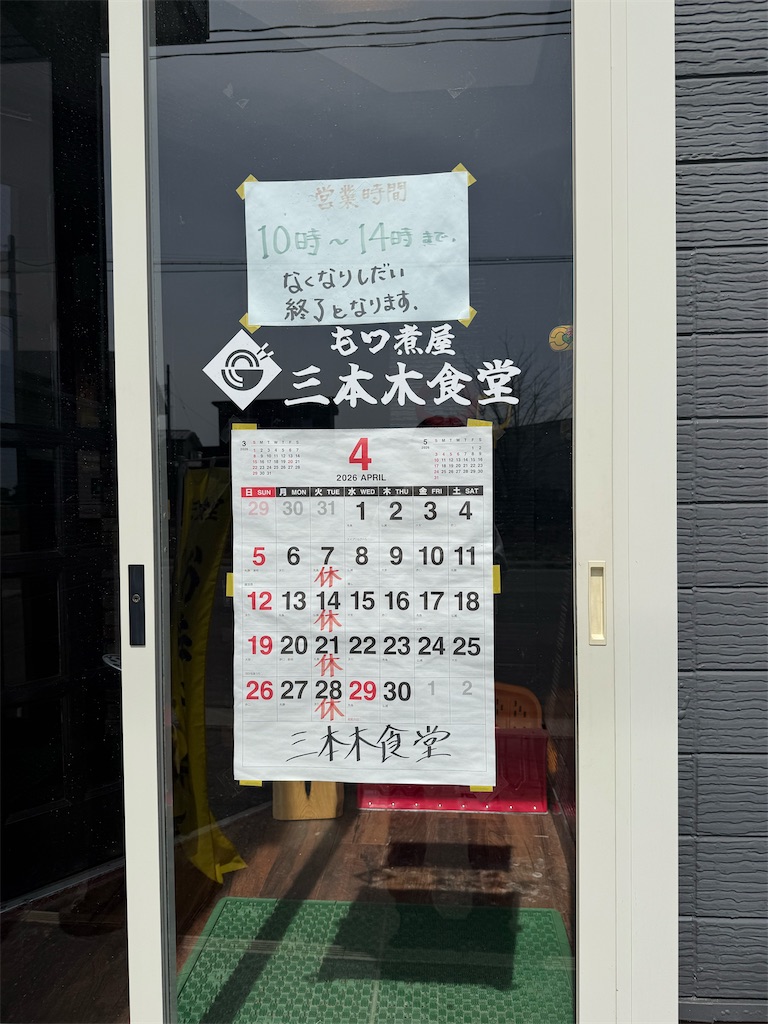 営業時間
10時〜14時まで。
なくなりしだい
終了となります。
もつ煮屋
三本木食堂
3 4 5
2026 APRIL
日 SUN 月 MON 火 TUE 水 WED 木 THU 金 FRI 土 SAT
29 30 31 1 2 3 4
5 6 7 8 9 10 11
休
12 13 14 15 16 17 18
休
19 20 21 22 23 24 25
休
26 27 28 29 30 1 2
休
三本木食堂